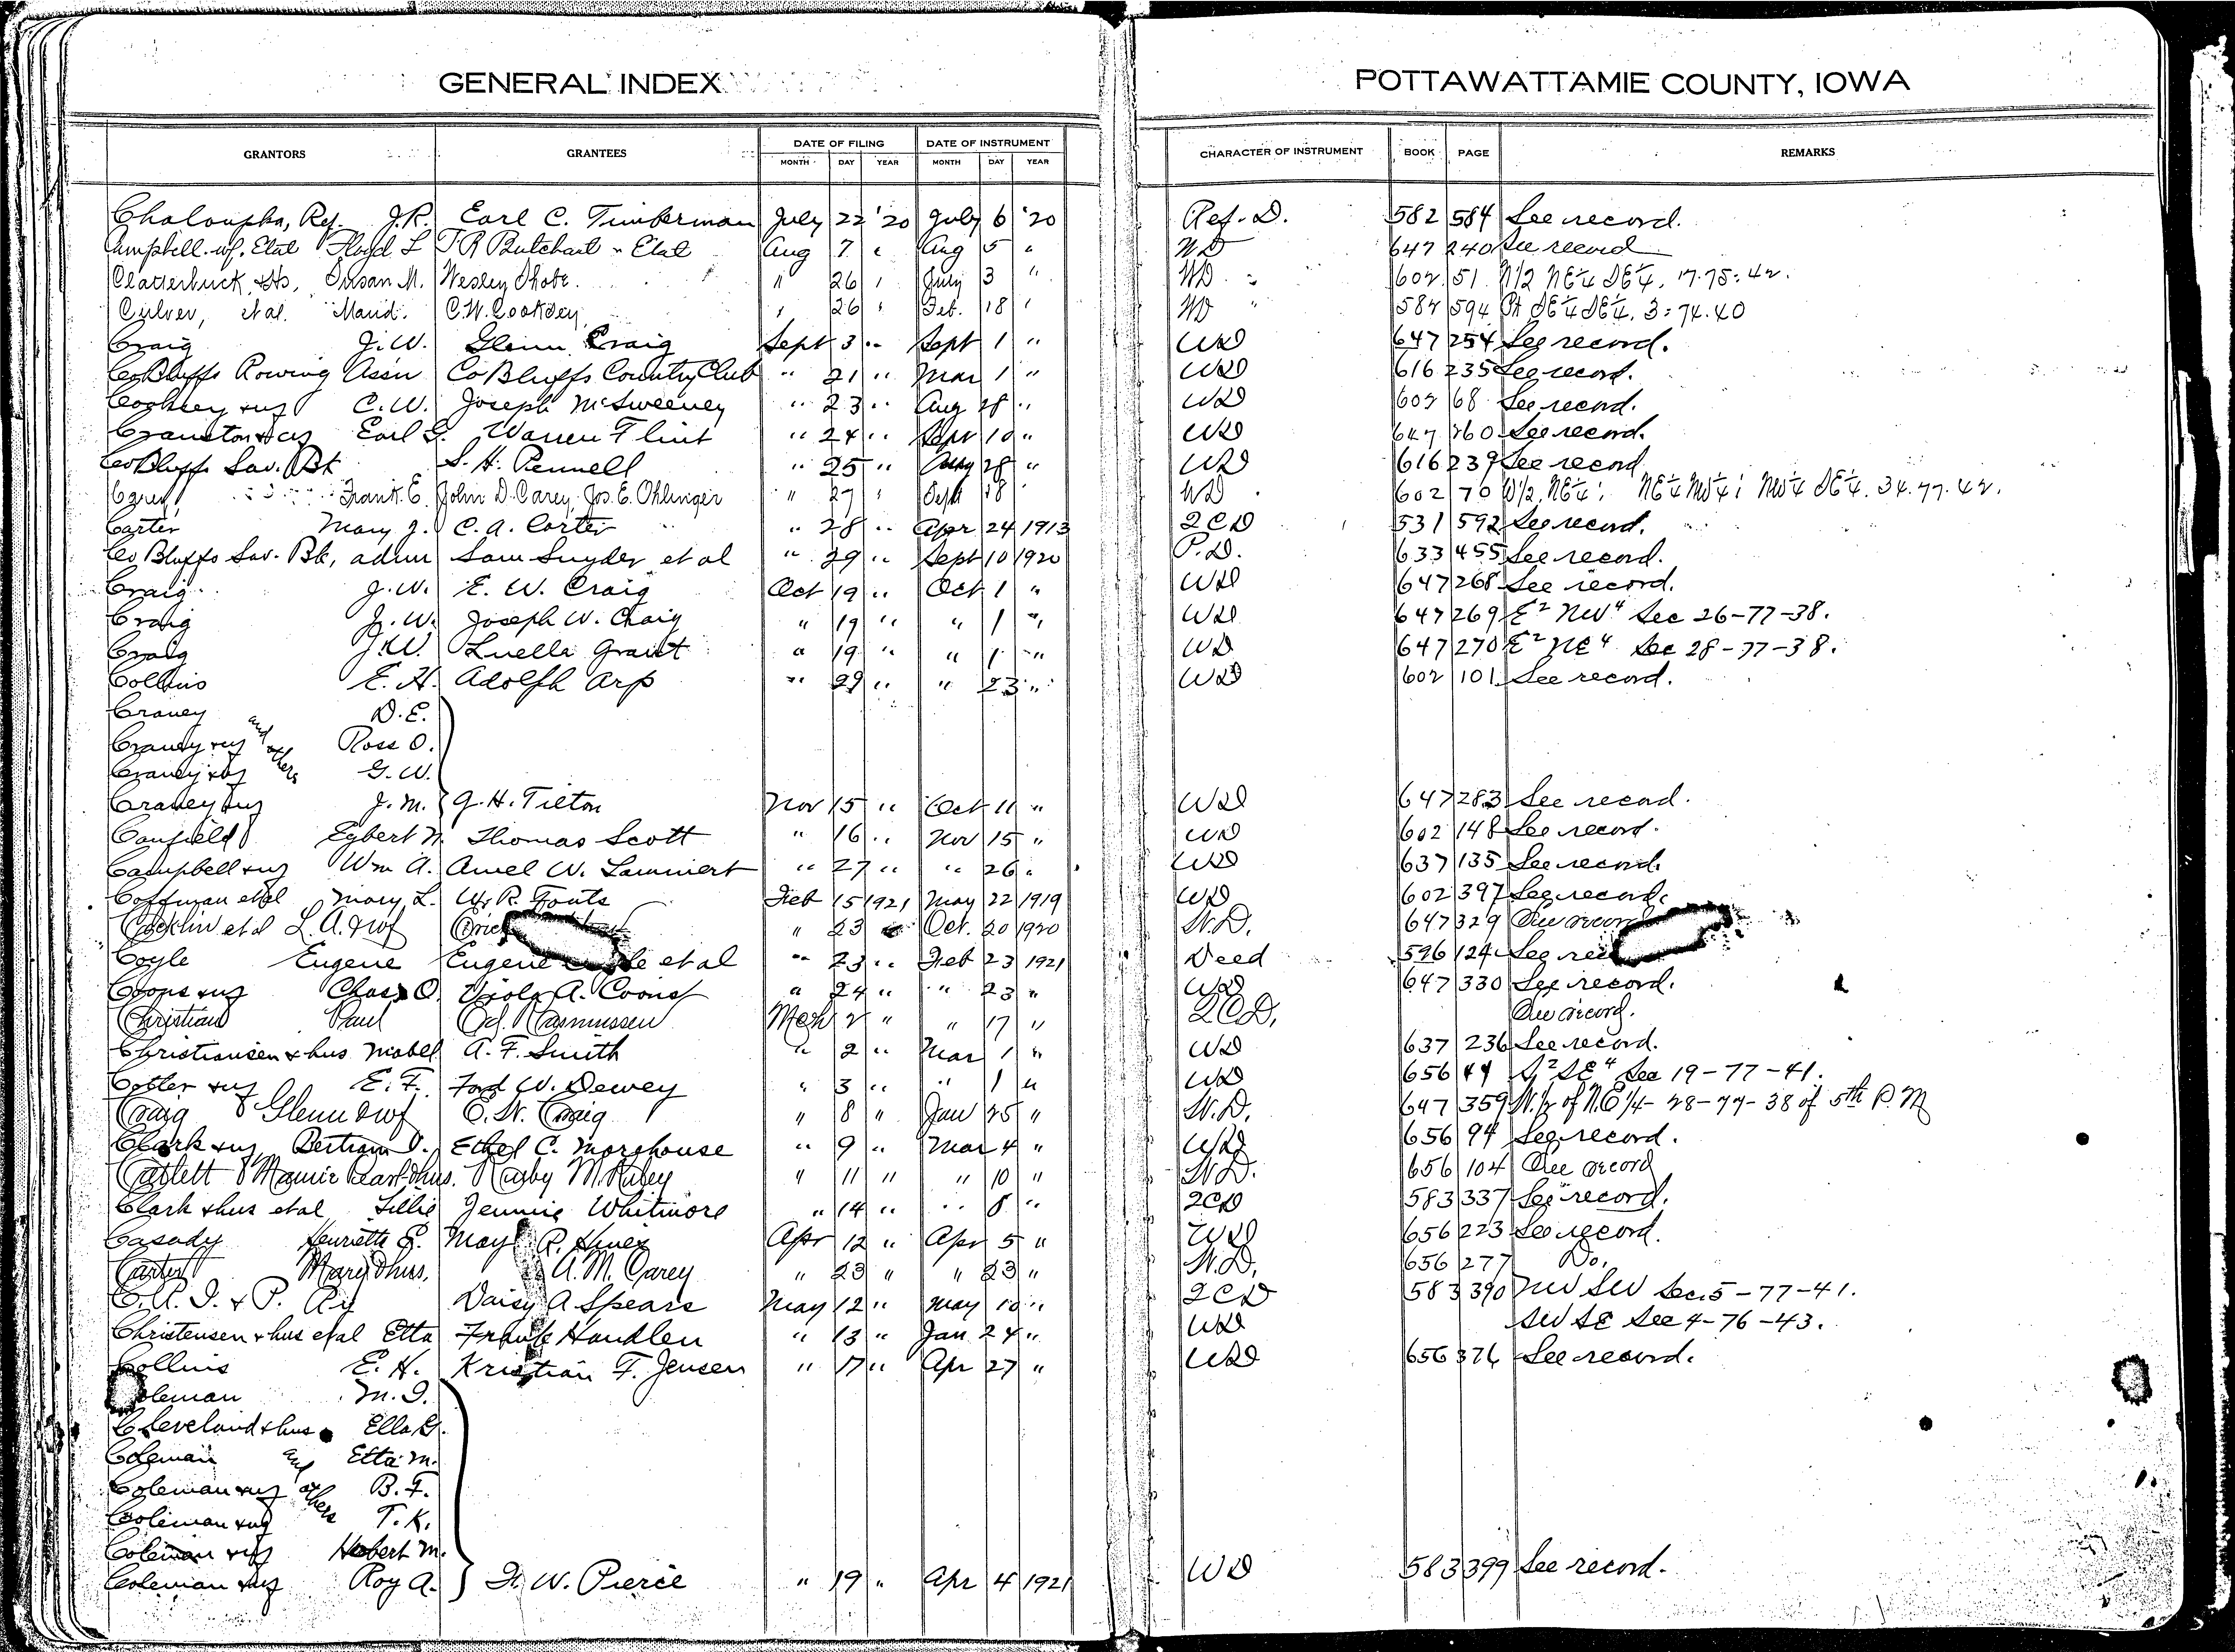 GENERAL INDEX
POTTAWATTAMIE COUNTY, IOWA
GRANTORS GRANTEES DATE OF FILING DATE OF INSTRUMENT CHARACTER OF INSTRUMENT BOOK PAGE REMARKS
MONTH DAY YEAR MONTH DAY YEAR
Chaloupka, Ref. J.R. Earl C. Timberman July 22 '20 July 6 '20 Ref. D. 582 584 See record.
Campbell wf. Etal Floyd L J.R. Butchart Etal Aug 7 " Aug 5 " WD 647 240 See record
Clatterbuck, Susan M. Wesley " 26 " July 3 " WD 602 51 N/2 NE¼ SE¼, 17.75.42.
Culver, et al. Maud. C.W. Cooksey " 26 " Feb. 18 " WD 582 594 Pt SE¼ SE¼, 3.74.40
Craig J.W. Glenn Craig Sept 3 " Sept 1 " WD 647 254 See record.
Co Bluffs Rowing Ass'n Co Bluffs Country Club " 21 " Mar 1 " WD 616 235 See record.
Cooksey & wf C.W. Joseph McSweeney " 23 " Aug 28 " WD 602 68 See record.
Cranston & wf Earl G. Warren Flint " 24 " Sept 10 " WD 647 260 See record.
Co Bluffs Sav. Bk S. H. Pennell " 25 " Aug 28 " WD 616 239 See record
Carey, Frank E. John D. Carey, Jos. E. Ohlinger " 27 " Sept 18 " WD 602 70 W/2, NE¼; NE¼ NW¼; NW¼ SE¼. 34.77.42.
Carter Mary J. C. A. Carter " 28 " Apr 24 1913 QCD 531 592 See record.
Co Bluffs Sav. Bk, admr Sam Snyder et al " 29 " Sept 10 1920 P.D. 633 455 See record.
Craig J.W. E. W. Craig Oct 19 " Oct 1 " WD 647 268 See record.
Craig J.W. Joseph W. Craig " 19 " " 1 " WD 647 269 E² NW⁴ Sec 26-77-38.
Craig J.W. Luella Grant " 19 " " 1 " WD 647 270 E² NE⁴ Sec 28-77-38.
Collins E. H. Adolph Arp " 29 " " 23 " WD 602 101 See record.
Craney D.E.
Craney & wf and others Ross O.
Craney & wf G.W.
Craney & wf J.M. J.H. Tilton Nov 15 " Oct 11 " WD 647 283 See record.
Canfield Egbert N. Thomas Scott " 16 " Nov 15 " WD 602 148 See record.
Campbell & wf Wm A. Amel W. Lammert " 27 " " 26 " WD 637 135 See record.
Coffman et al Mary L. W. R. Fouts Feb 15 1921 May 22 1919 WD 602 397 See record.
et al L. A. & wf " 23 " Oct. 20 1920 W.D. 647 329 See record
Coyle Eugene Eugene et al " 23 " Feb 23 1921 Deed 596 124 See
Coons & wf Chas. O. Viola A. Coons " 24 " " 23 " WD 647 330 See record.
Christian Paul Rasmussen Mch 2 " " 17 " QCD. See record.
Christiansen & hus Mabel A. F. Smith " 2 " Mar 1 " WD 637 236 See record.
Cotler & wf E. F. Ford W. Dewey " 3 " " 1 " WD 656 44 S² SE⁴ Sec 19-77-41.
Craig Glenn & wf E. W. Craig " 8 " Jan 25 " W.D. 647 359 W.½ of N.E ¼- 28-77-38 of 5th P.M
Clark & wf Bertram D. Ethel C. Morehouse " 9 " Mar 4 " WD 656 94 See record.
Catlett Mamie Pearl & hus. Rigby M. " 11 " " 10 " W.D. 656 104 See record
Clark & hus et al Lillie Jennie Whitmore " 14 " " 8 " QCD 583 337 See record.
Casady Henrietta E. May P. Apr 12 " Apr 5 " WD 656 223 See record.
Carter Mary & hus. A. M. Carey " 23 " " 23 " W.D. 656 277 Do.
C. R. I. & P. Ry Daisy A Spears May 12 " May 10 " QCD 583 390 NW SW Sec. 5-77-41.
Christensen & hus et al Etta Frank Handlen " 13 " Jan 24 " WD SW SE Sec 4-76-43.
Collins E. H. Kristian F. Jensen " 17 " Apr 27 " WD 656 376 See record.
Coleman M. I.
Cleveland & hus Ella G.
Coleman and Etta M.
Coleman & wf others B. F.
Coleman & wf T. K.
Coleman & wf Hobert M.
Coleman & wf Roy A. W. Pierce " 19 " Apr 4 1921 WD 583 399 See record.